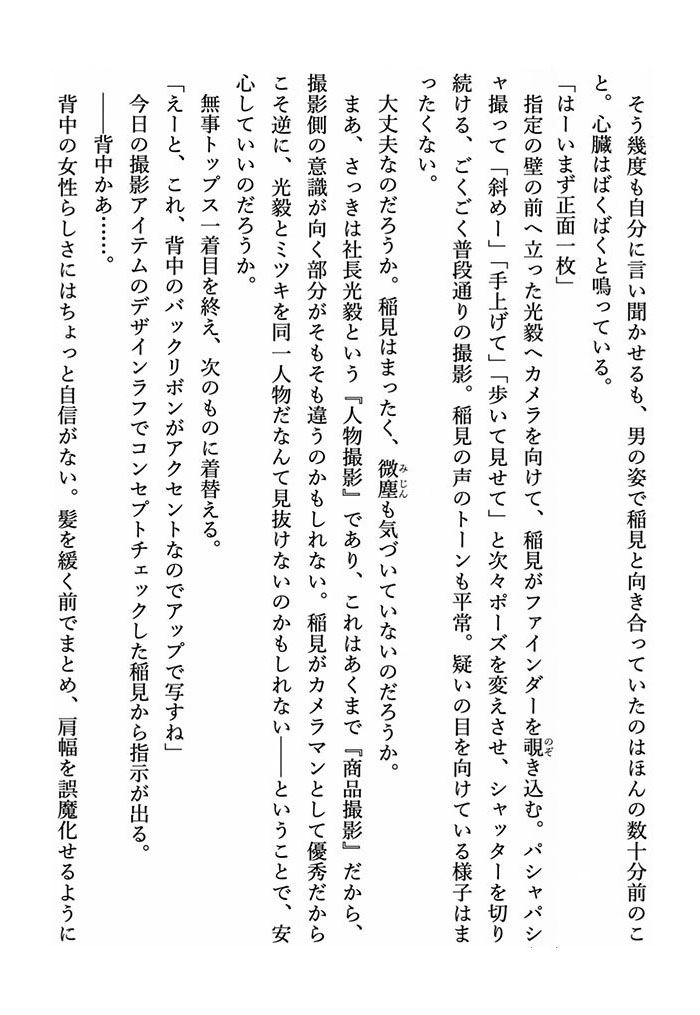 そう幾度も自分に言い聞かせるも、男の姿で稲見と向き合っていたのはほんの数十分前のこ
と。心臓はばくばくと鳴っている。
「はーいまず正面一枚」
　指定の壁の前へ立った光毅へカメラを向けて、稲見がファインダーを覗き込む。パシャパシ
ャ撮って「斜めー」「手上げて」「歩いて見せて」と次々ポーズを変えさせ、シャッターを切り
続ける、ごくごく普段通りの撮影。稲見の声のトーンも平常。疑いの目を向けている様子はま
ったくない。
　大丈夫なのだろうか。稲見はまったく、微塵も気づいていないのだろうか。
　まあ、さっきは社長光毅という『人物撮影』であり、これはあくまで『商品撮影』だから、
撮影側の意識が向く部分がそもそも違うのかもしれない。稲見がカメラマンとして優秀だから
こそ逆に、光毅とミツキを同一人物だなんて見抜けないのかもしれない――ということで、安
心していいのだろうか。
　無事トップス一着目を終え、次のものに着替える。
「えーと、これ、背中のバックリボンがアクセントなのでアップで写すね」
　今日の撮影アイテムのデザインラフでコンセプトチェックした稲見から指示が出る。
　――背中かあ……。
　背中の女性らしさにはちょっと自信がない。髪を緩く前でまとめ、肩幅を誤魔化せるように
のぞ
みじん